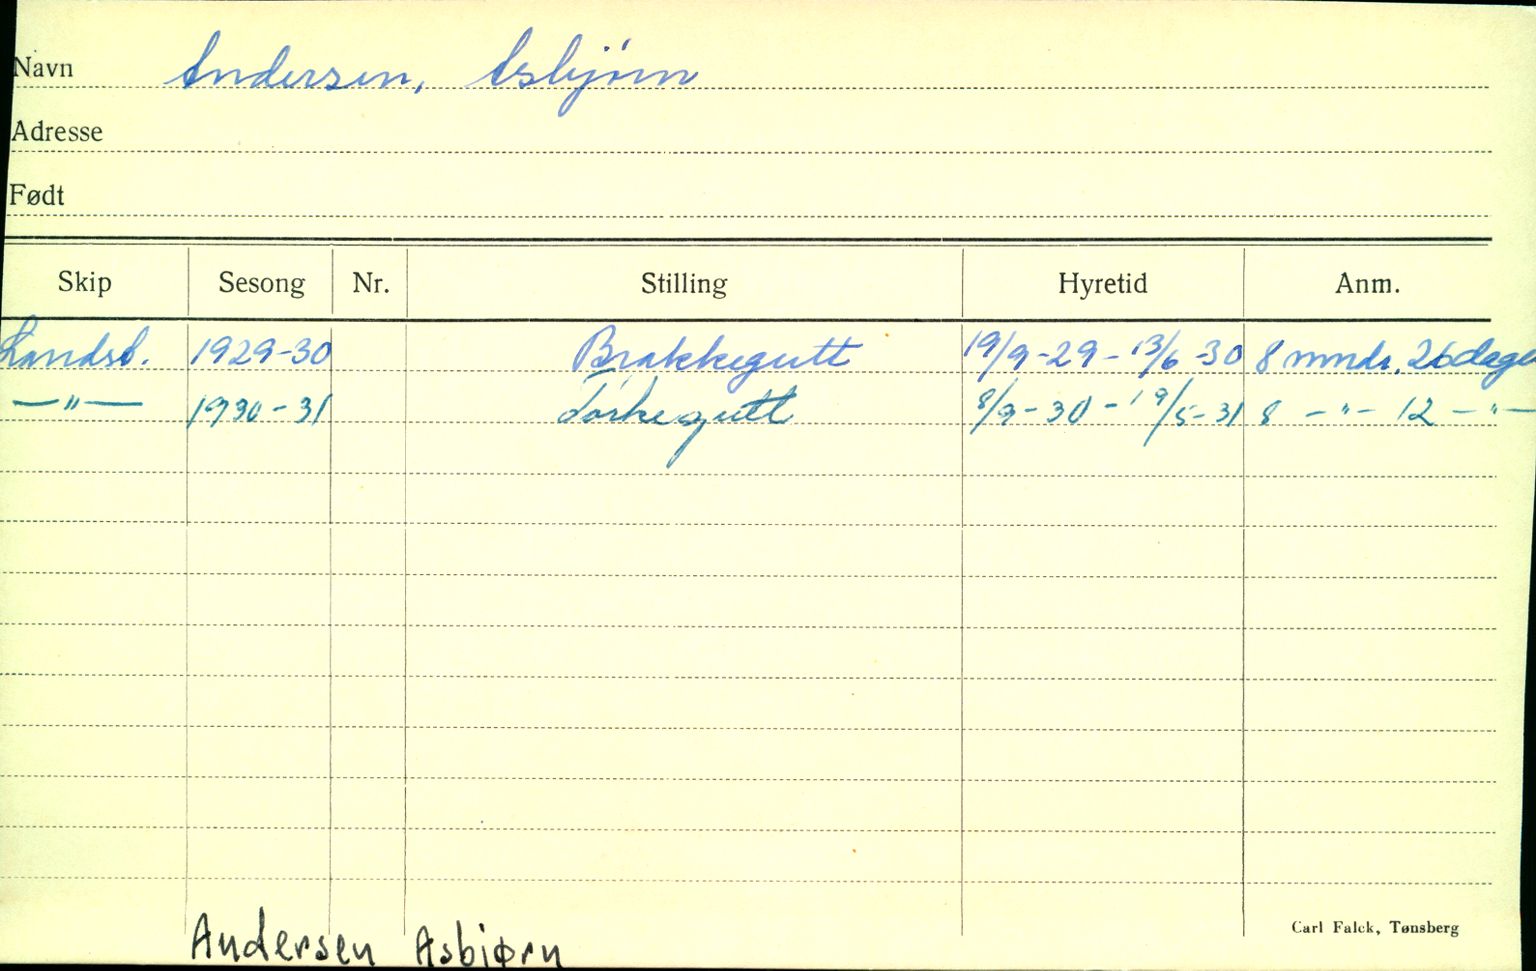 Navn Andersen, Asbjörn
Adresse
Født
Skip Sesong Nr. Stilling Hyretid Anm.
Landst. 1929-30 Brakkegutt 19/9-29 - 13/6-30 8 mndr. 26 dage
—"— 1930-31 Törkegutt 8/9-30 - 19/5-31 8 -"- 12 -"-
Carl Falck, Tønsberg
Andersen Asbiørn